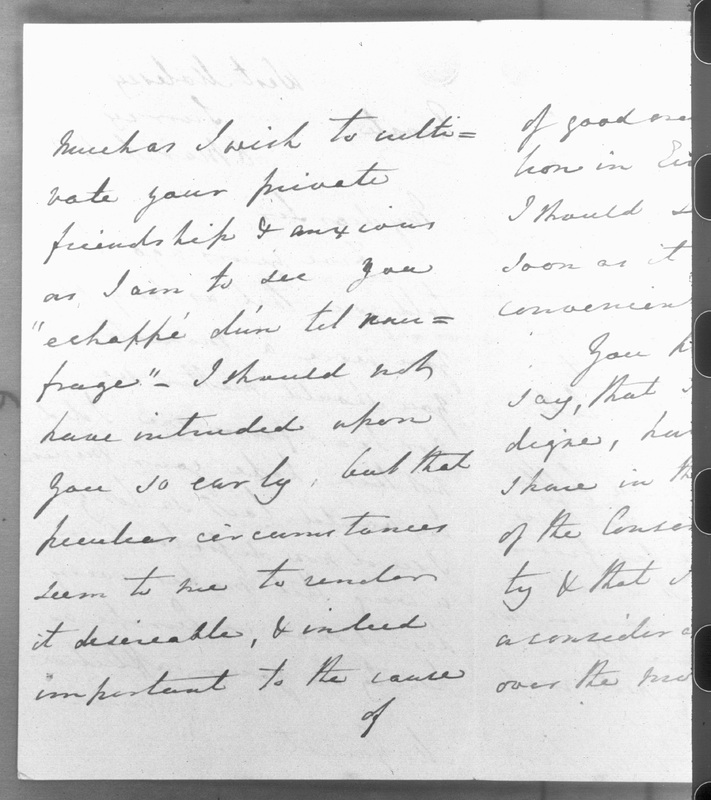 Much as I wish to culti=
vate your private
friendship & anxious
as I am to see you
"echappé d'un tel nau=
frage" - I should not
have intruded upon
you so early, but that
peculiar circumstances
seem to me to render
it desireable, & indeed
important to the cause
of
of good
tion in
I should
soon as it
convenien
You
say, that
digne, ha
share in th
of the Conser
ty & that
a consider
over the